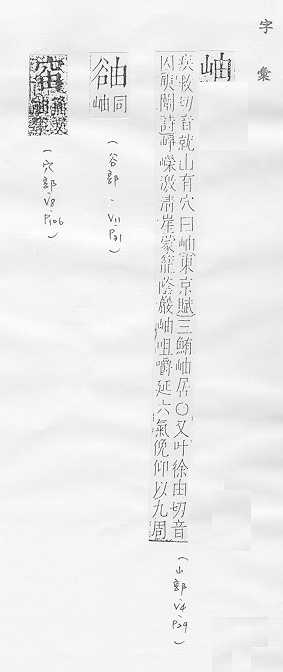 字彙
岫
疾救切音就山有穴曰岫東京賦三鮪岫居〇又叶徐由切音
囚庾闡詩崢嶸激清崖蒙籠蔭巖岫咀嚼延六氣俛仰以九周
(山部.V4.P29)
同
岫
(谷部.V11.P31)
(穴部.V8.P106)